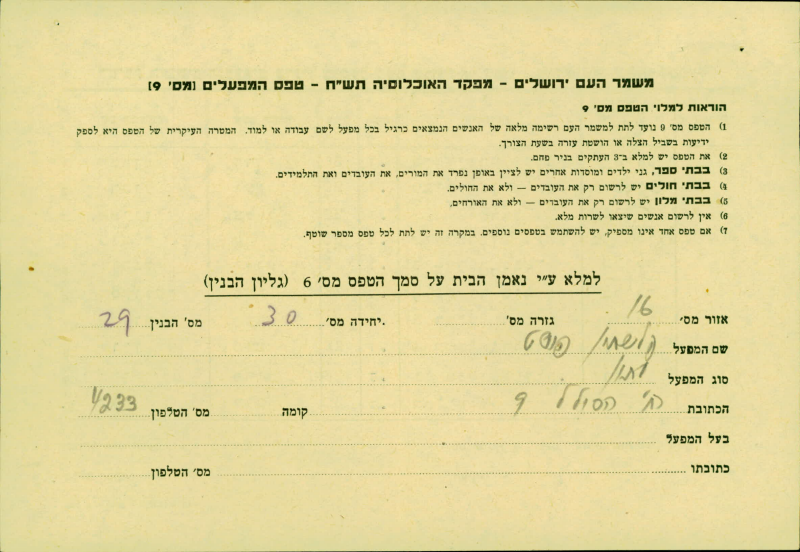 משמר העם ירושלים – מפקד האוכלוסיה תש"ח – טפס המפעלים [מס' 9]
הוראות למלוי הטפס מס' 9
1) הטפס מס' 9 נועד לתת למשמר העם רשימה מלאה של האנשים הנמצאים כרגיל בכל מפעל לשם עבודה או למוד. המטרה העיקרית של הטפס היא לספק
ידיעות בשביל הצלה או הושטת עזרה בשעת הצורך.
2) את הטפס יש למלא ב־3 העתקים בניר פחם.
3) בבתי ספר, גני ילדים ומוסדות אחרים יש לציין באופן נפרד את המורים, את העובדים ואת התלמידים.
4) בבתי חולים יש לרשום רק את העובדים — ולא את החולים.
5) בבתי מלון יש לרשום רק את העוברים — ולא את האורחים.
6) אין לרשום אנשים שיצאו לשרות מלא.
7) אם טפס אחד אינו מספיק, יש להשתמש בטפסים נוספים. במקרה זה יש לתת לכל טפס מספר שוטף.
למלא ע"י נאמן הבית על סמך הטפס מס' 6 (גליון הבנין)
אזור מס' 16 גזרה מס' יחידה מס' 30 מס' הבנין 29
שם המפעל פלשתין פוסט
סוג המפעל עתון
הכתובת רח' הסולל 9 קומה מס' הטלפון 4233
בעל המפעל
כתובתו מס' הטלפון